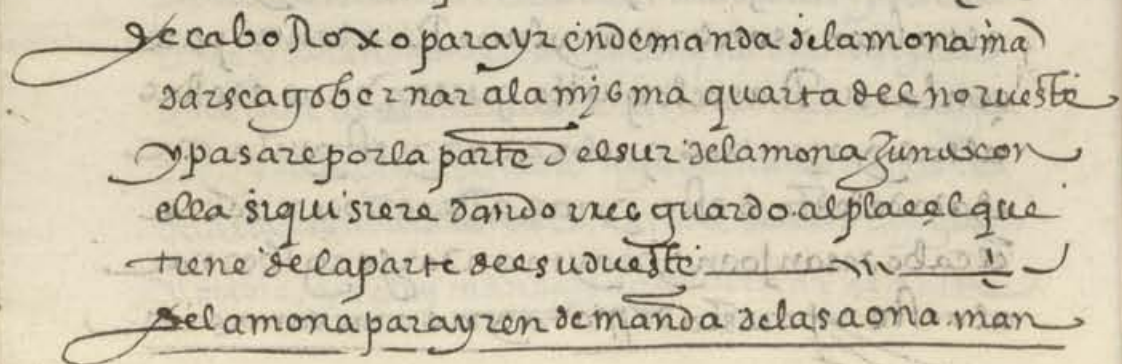 de cabo Roxo para yr en demanda de la mona mā
darse a gobernar a la misma quarta del norueste
y pasare por la parte del sur de la mona Junto con
ella si quisiere dando guardo al placel que
tiene de la parte del sudueste
de la mona para yr en demanda de la saona man